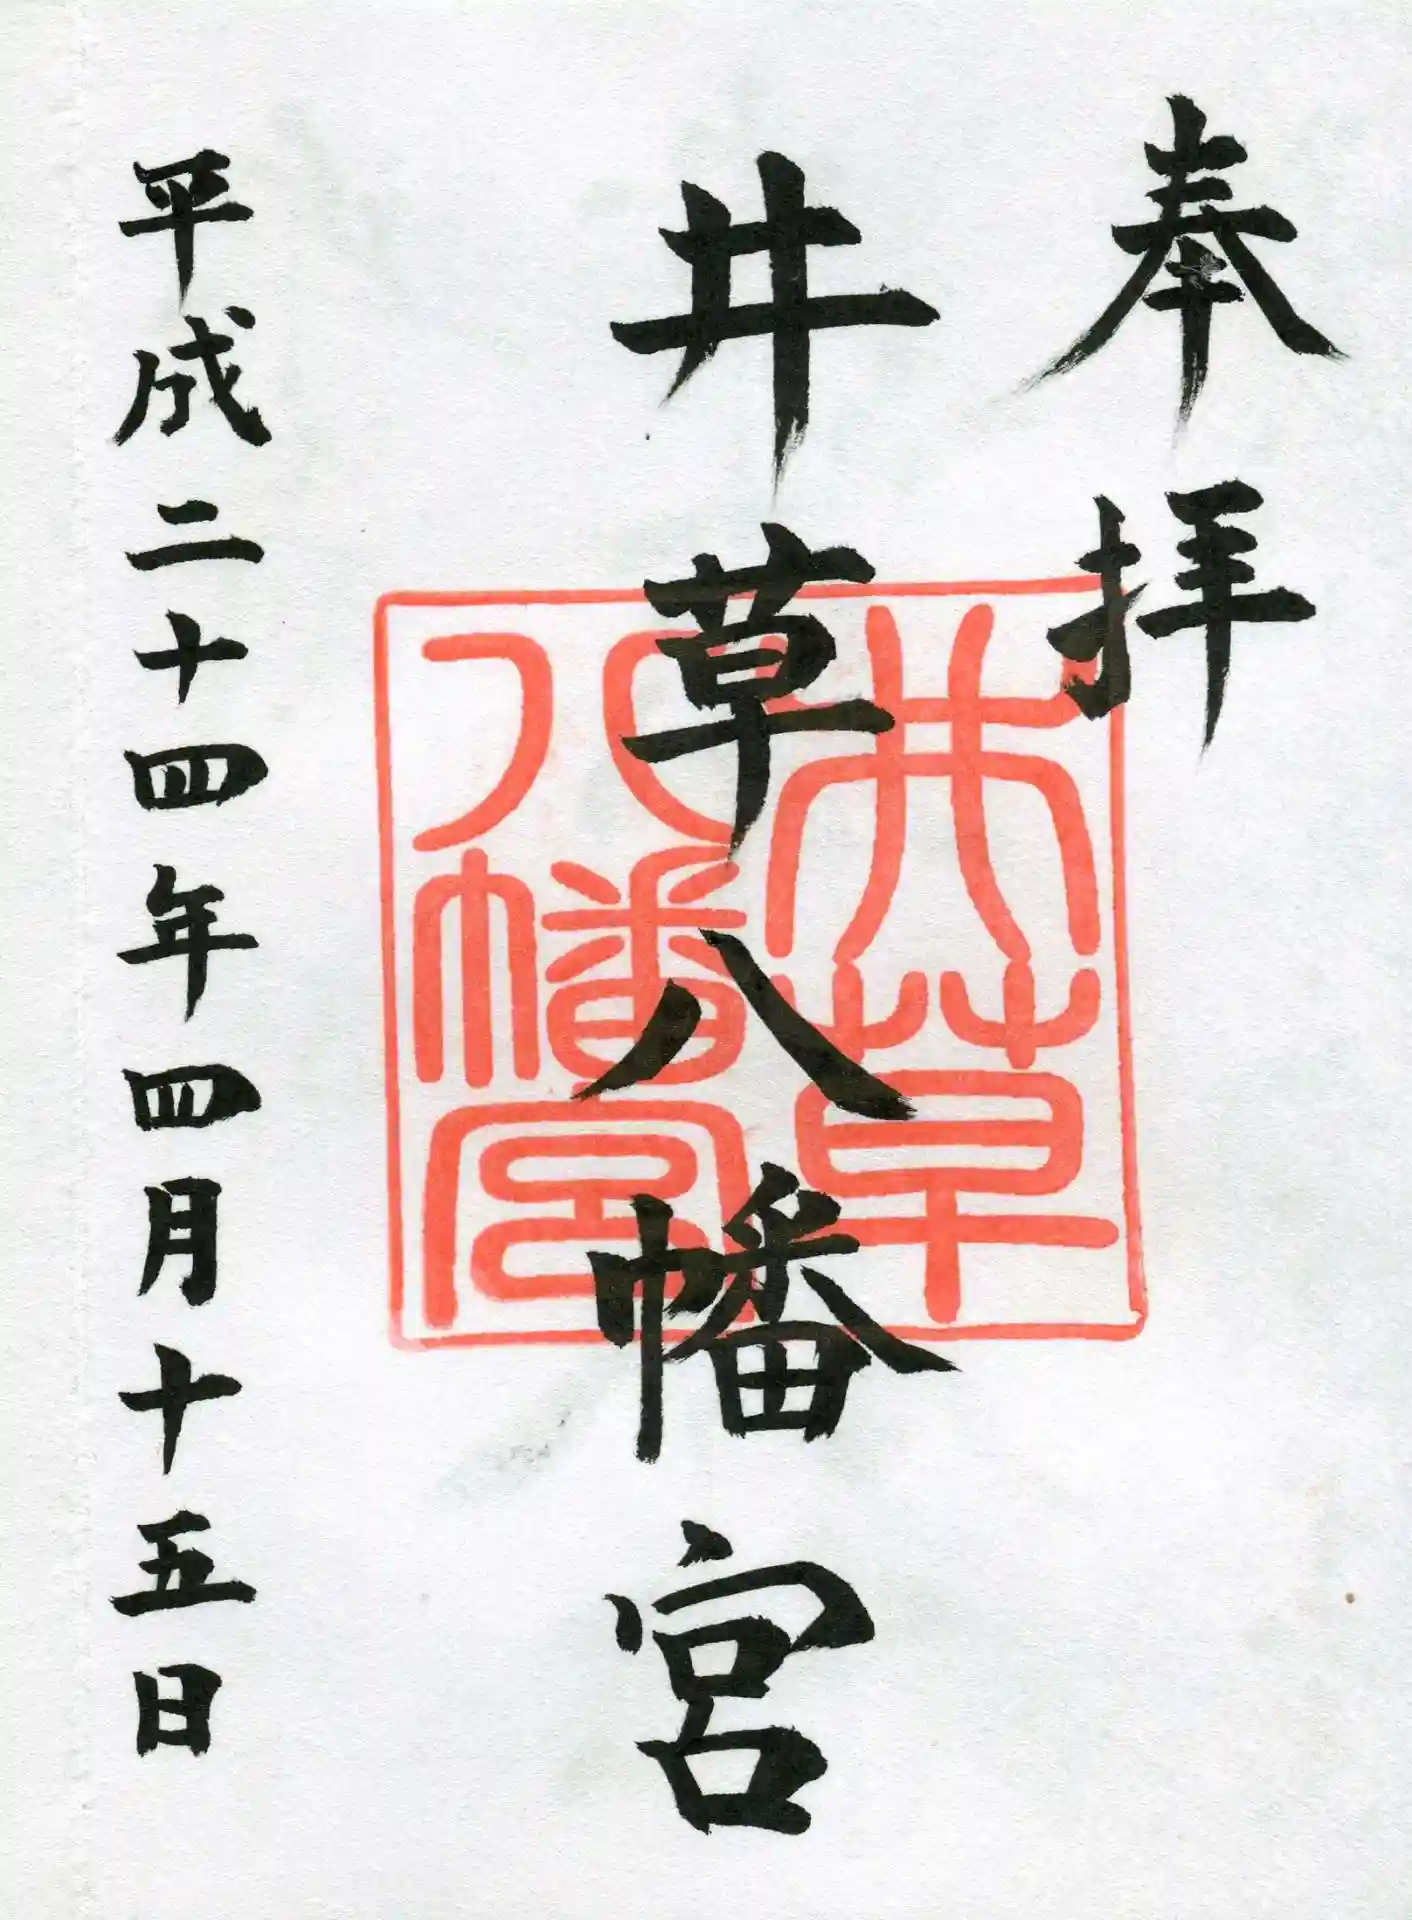 奉拝
井草八幡宮
井草
八幡宮
平成二十四年四月十五日